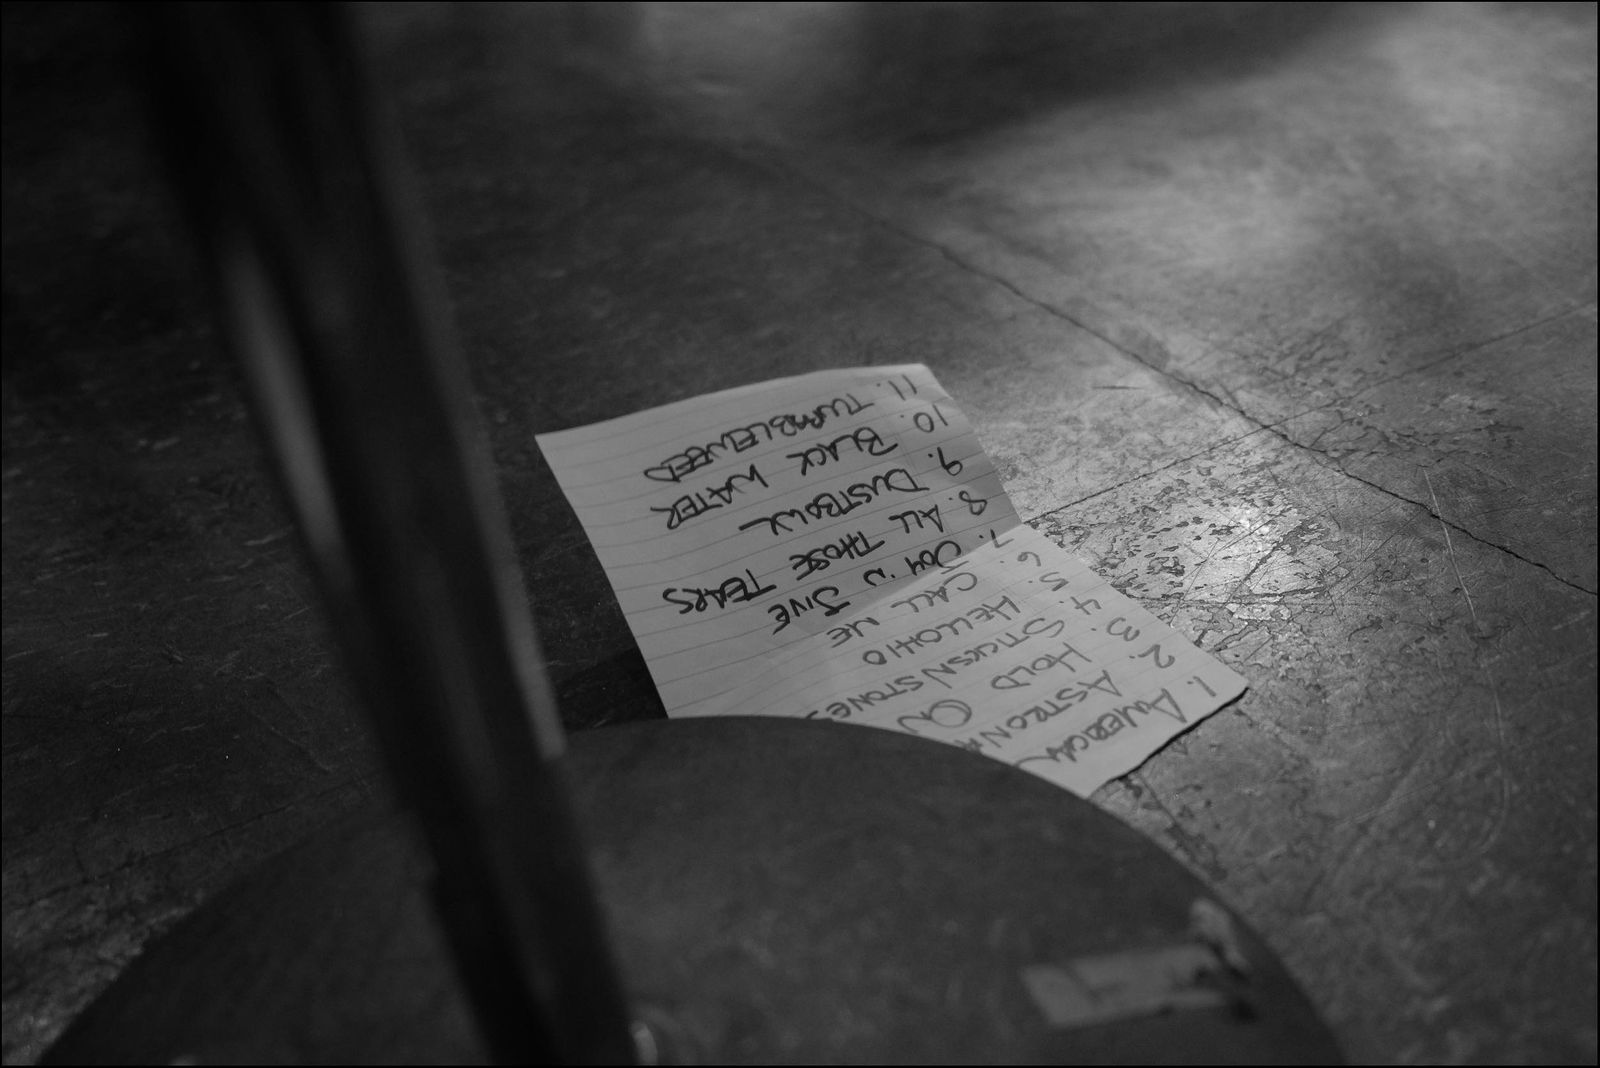 1. AMERICAN
2. ASTRONA
3. HOLD ON
4. STICKS N STONES
5. HELLOHIO
6. CALL ME
7. JOY N JIVE
8. ALL THOSE TEARS
9. DUSTBOWL
10. BLACK WATER
11. TUMBLEWEED